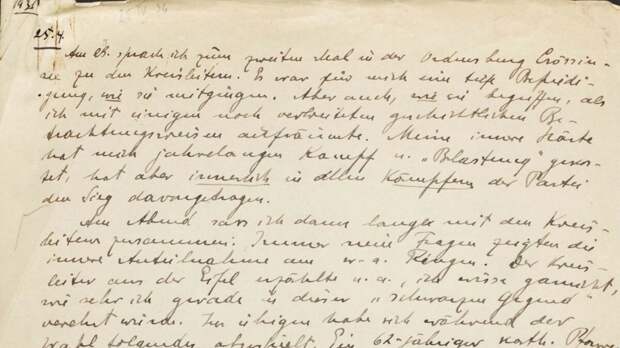 25.4.
Am 25. sprach ich zum zweiten Mal in der Ordensburg Crössin-
see zu den Kreisleitern. Es war für mich eine tiefe Befriedi-
gung, wie sie mitgingen. Aber auch, wie sie begriffen, als
ich mit einigen noch verbreiteten geschichtlichen Be-
trachtungsweisen aufräumte. Meine innere Härte
hat mich jahrelangen Kampf u. „Belastung" gekos-
tet, hat aber innerlich in allen Kämpfern der Partei
den Sieg davongetragen.
Am Abend sass ich dann lange mit den Kreis-
leitern zusammen. Immer neue Fragen zeigten die
innere Anteilnahme am Ringen. Der Kreis-
leiter aus der Eifel erzählte u. a., ich wisse garnicht,
wie sehr ich gerade in dieser „schwarzen Gegend"
verehrt würde. Im übrigen habe sich während der
Wahl folgendes abgespielt. Ein 62-jähriger kath.